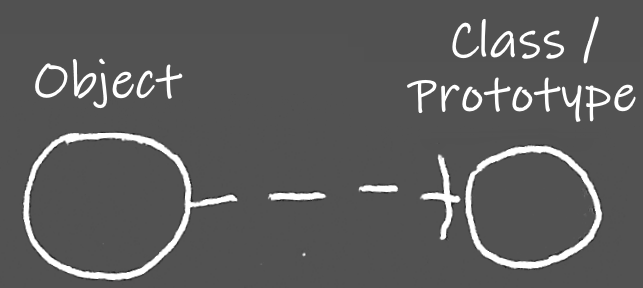 Object
Class /
Prototype